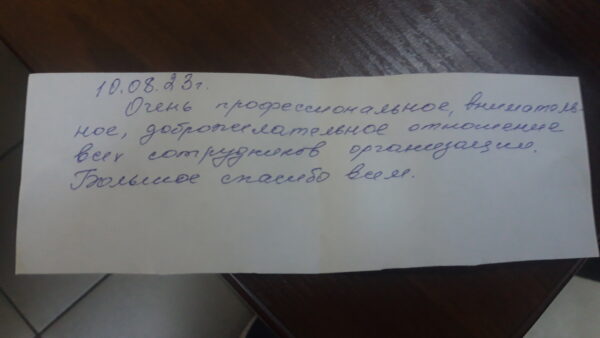 10.08.23г.
Очень профессиональное, вниматель-
ное, доброжелательное отношение
всех сотрудников организации.
Большое спасибо всем.